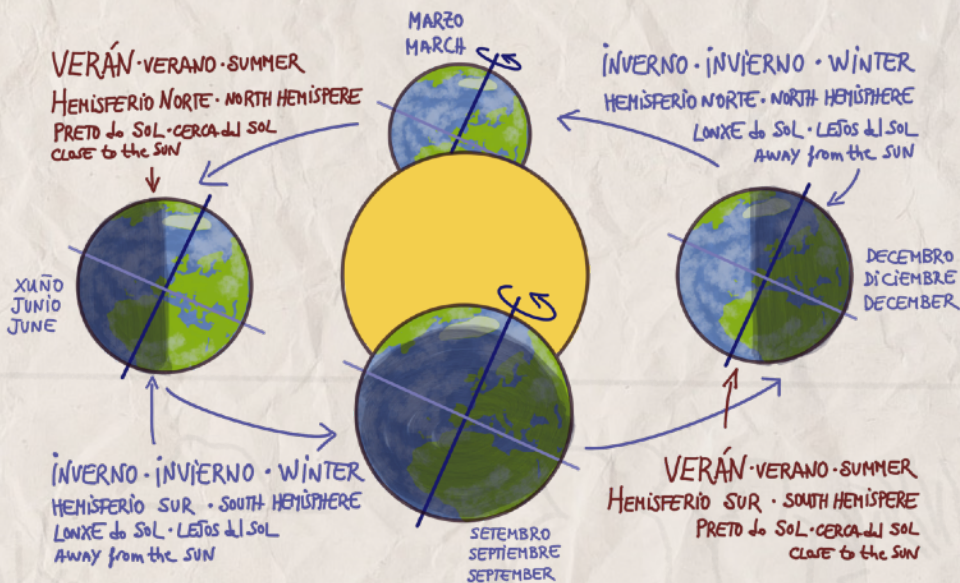 MARZO
MARCH
VERÁN · VERANO · SUMMER
HEMISFERIO NORTE · NORTH HEMISPERE
PRETO do SOL · CERCA del SOL
CLOSE to the SUN
INVERNO · INVIERNO · WINTER
HEMISFERIO NORTE · NORTH HEMISPHERE
LONXE do SOL · LEJOS del SOL
AWAY from the SUN
XUÑO
JUNIO
JUNE
DECEMBRO
DICIEMBRE
DECEMBER
INVERNO · INVIERNO · WINTER
HEMISFERIO SUR · SOUTH HEMISPHERE
LONXE do SOL · LEJOS del SOL
AWAY from the SUN
SETEMBRO
SEPTIEMBRE
SEPTEMBER
VERÁN · VERANO · SUMMER
HEMISFERIO SUR · SOUTH HEMISPERE
PRETO do SOL · CERCA del SOL
CLOSE to the SUN